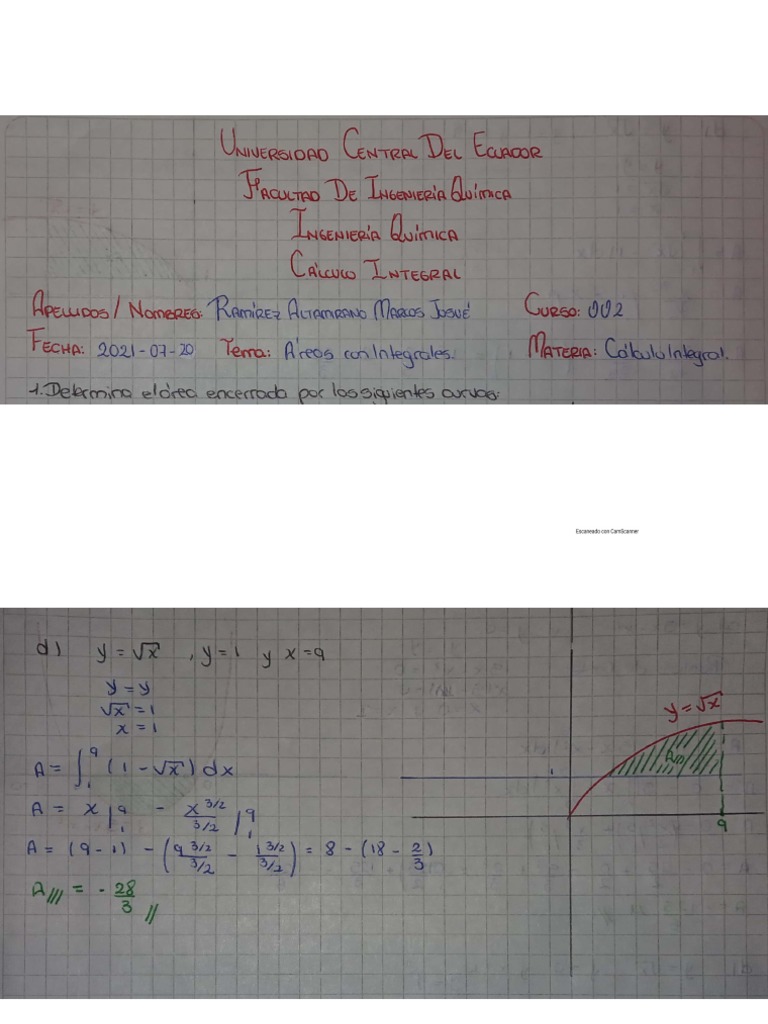 UNIVERSIDAD CENTRAL DEL ECUADOR
FACULTAD DE INGENIERÍA QUÍMICA
INGENIERÍA QUÍMICA
CÁLCULO INTEGRAL
APELLIDOS / NOMBRES: RAMÍREZ ALTAMIRANO MARCOS JOSUÉ CURSO: 002
FECHA: 2021-07-20 TEMA: Áreas con Integrales. MATERIA: Cálculo Integral.
1. Determina el área encerrada por las siguientes curvas:
Escaneado con CamScanner
d) y = √x , y = 1 y x = 9
y = y
√x = 1
x = 1
y = √x
A = ∫₁⁹ (1 - √x) dx
A///
A = x |₁⁹ - x^3/2 / 3/2 |₁⁹
9
A = (9 - 1) - (9^3/2 / 3/2 - 1^3/2 / 3/2) = 8 - (18 - 2/3)
A/// = - 28/3 //